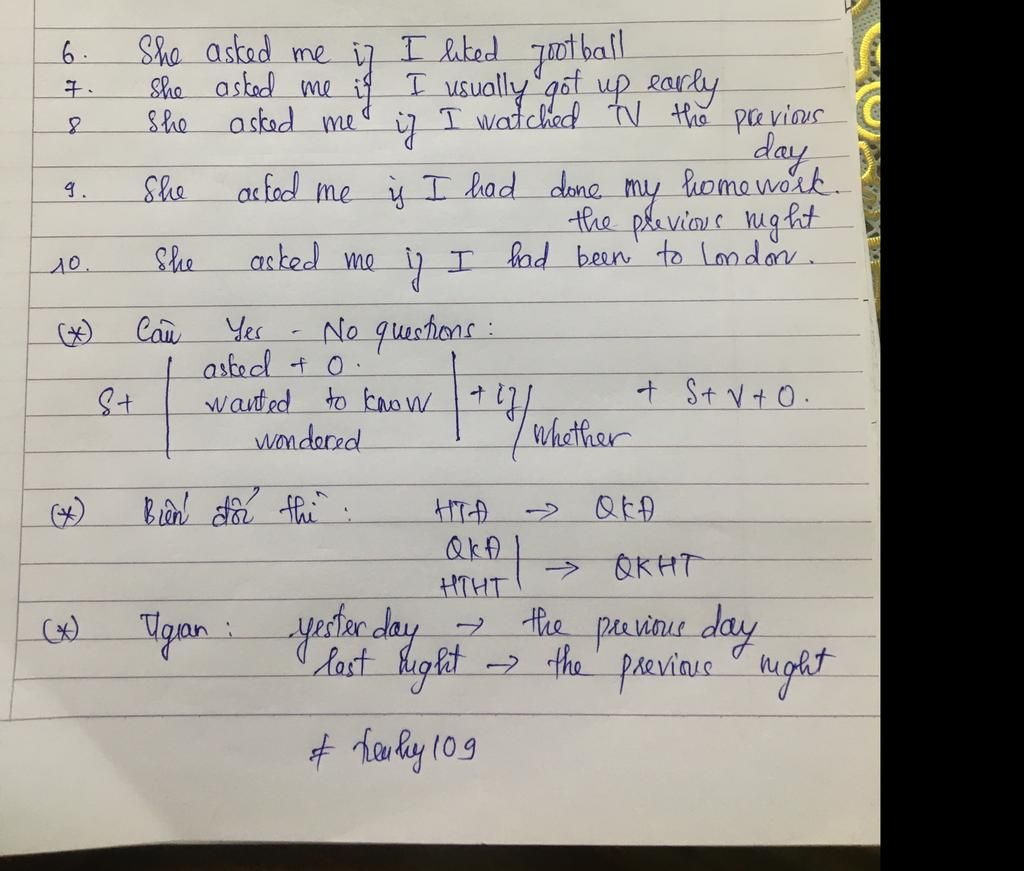 6. She asked me if I liked football
7. She asked me if I usually got up early
8 She asked me if I watched TV the previous
day
9. She asked me if I had done my homework.
the previous night
10. She asked me if I had been to London.
(*) Câu Yes - No questions:
asked + O.
S+ wanted to know + if/ + S+ V+O.
wondered whether
(*) Biến đổi thì: HTĐ → QKĐ
QKĐ
HTHT → QKHT
(*) Tgian: yesterday → the previous day
last night → the previous night